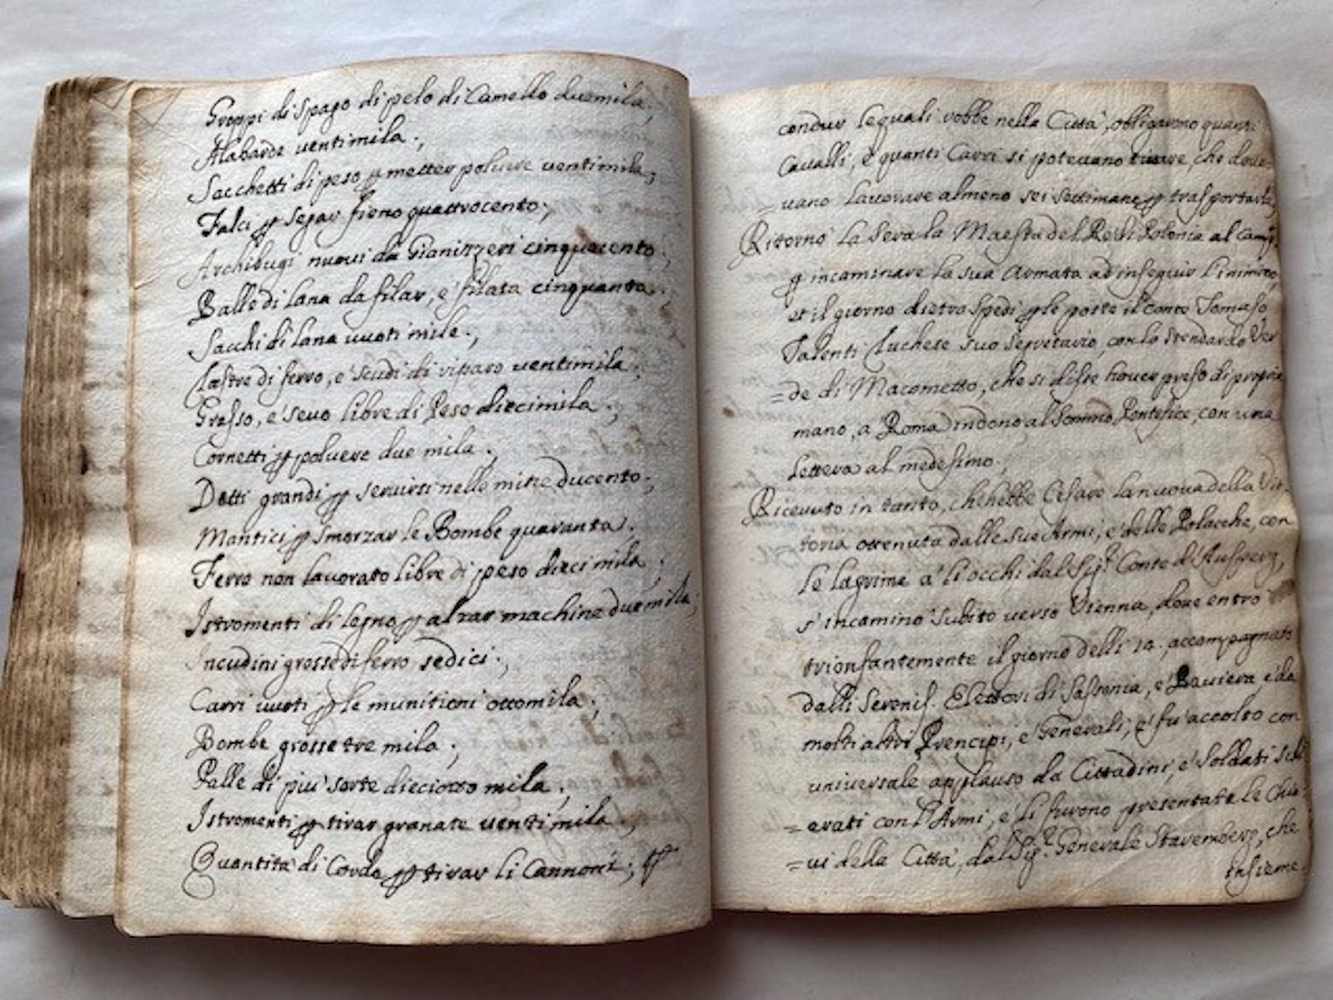 Groppi di spago di pelo di Camello duemila;
Alabarde ventimila;
Sacchetti di peso p metter poluere ventimila;
Falci p segar fieno quattrocento;
Archibugi nuoui da Gianizzeri cinquecento;
Balle di lana da filar, e filata cinquanta;
Sacchi di lana uuoti mile;
Lastre di ferro, e scudi di riparo ventimila;
Grasso, e seuo libre di Peso diecimila;
Cornetti p poluere due mila;
Detti grandi p seruirsi nelle mine ducento;
Mantici p smorzar le Bombe quaranta;
Ferro non lauorato libre di peso dieci mila;
Istromenti di legno p alzar machine due mila;
Incudini grosse di ferro sedici;
Carri uuoti p le munitioni ottomila;
Bombe grosse tre mila;
Palle di più sorte dieciotto mila;
Istromenti p tirar granate uentimila;
Quantità di Corde p tirar li Cannoni;
condur le quali robbe nella Città, obligarono quanti
Caualli, e quanti Carri si poteuano hauere, che doue=
=uano lauorare almeno sei settimane p trasportarle,
Ritornò la Sera la Maestà del Re di Polonia al Camp
p incaminare la sua Armata ad inseguir l'inimico,
et il giorno dietro spedì p le poste il Conte Tomaso
Talenti Luchese suo Segretario, con lo stendardo Ver
=de di Macometto, che si disse hauer preso di propria
mano, a Roma in dono al Sommo Pontefice, con una
lettera al medesimo.
Riceuuto in tanto, ch'hebbe Cesare la nuoua della Vit
toria ottenuta dalle sue Armi, e dalle Polacche, con
le lagrime a li occhi dal Sigr. Conte d'Ausperg,
s'incaminò subito uerso Vienna, doue entrò
trionfantemente il giorno delli 14, accompagnato
dalli Sereniss. Elettori di Sassonia, e Bauiera e da
molti altri Prencipi, e Generali, e fu accolto con
uniuersale applauso da Cittadini, e Soldati schi
=erati con l'Armi, e li furono presentate le Chia
=ui della Città, dal Sigr. Generale Staremberg, che
insieme